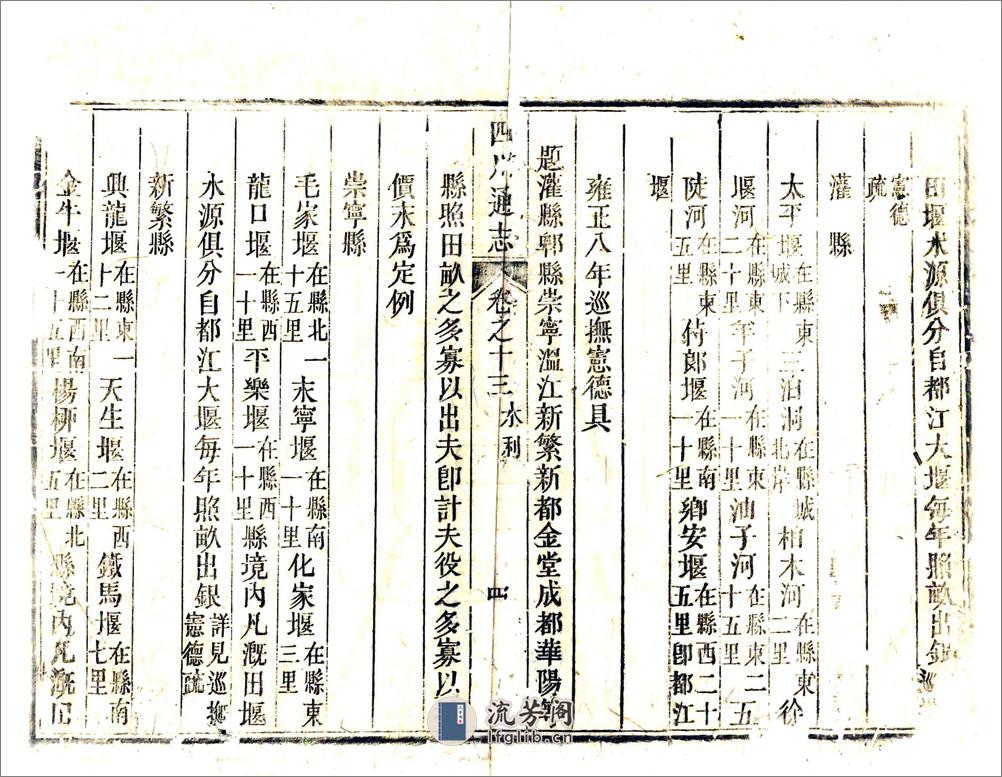 田堰水源俱分自都江大堰每年照畝出銀巡
憲德疏
灌縣
太平堰在縣東城下三泊洞在縣城北岸柏木河在縣東二里徐
堰河在縣東二十里羊子河在縣東一十里油子河在縣東二十五里五
陡河在縣東五里侍郎堰在縣南一十里鄉安堰在縣西二十五里卽都江
堰
雍正八年巡撫憲德具
題灌縣郫縣崇寧溫江新繁新都金堂成都華陽等
四川通志 卷之十三 水利 四
縣照田畝之多寡以出夫卽計夫役之多寡以
價永爲定例
崇寧縣
毛家堰在縣北十五里一永寧堰在縣南一十里化家堰在縣東三里
龍口堰在縣西一十里平樂堰在縣西一十里縣境內凡溉田堰
水源俱分自都江大堰每年照畝出銀詳見巡撫憲德疏
新繁縣
興龍堰在縣東十二里一天生堰在縣西二里鐵馬堰在縣南七里
金牛堰在縣西南一十五里楊柳堰在縣北五里縣境內凡溉田
流芳阁
lfglib.cn